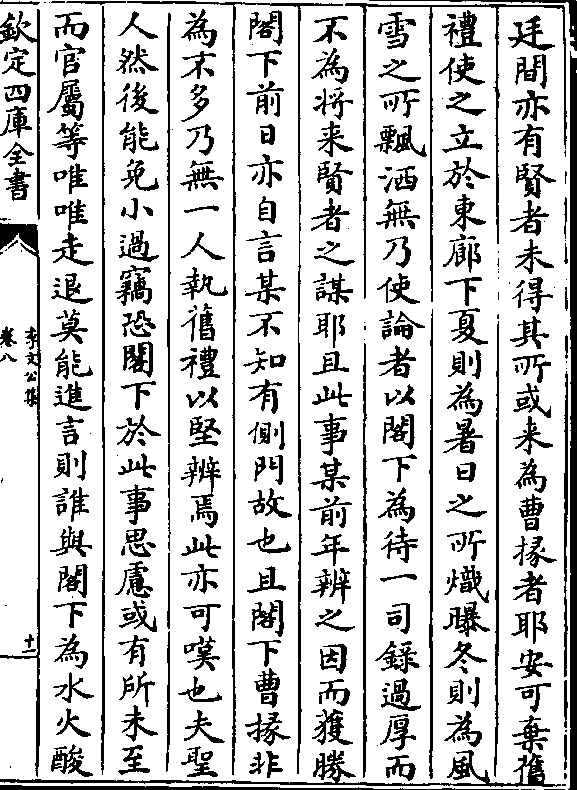 廷間亦有賢者未得其所或来為曹掾者耶安可棄舊
禮使之立於東廊下夏則為暑日之所熾曝冬則為風
雪之所飄洒無乃使論者以閣下為待一司錄過厚而
不為將来賢者之謀耶且此事某前年辨之因而獲勝
閣下前日亦自言某不知有側門故也且閣下曹掾非
為不多乃無一人執舊禮以堅辨焉此亦可嘆也夫聖
人然後能免小過竊恐閣下於此事思慮或有所未至
而官屬等唯唯走退莫能進言則誰與閣下為水火酸
欽定四庫全書
李文公集
卷八
十一